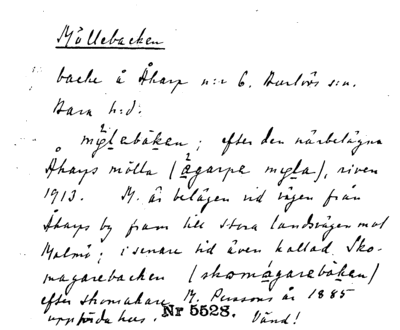 Möllebacken
backe å Åkarp n:r 6. Burlövs s:n.
Bara h:d.
myl̲ebäk̲en; efter den närbelägna
Åkarps mölla (ågarps myla), riven
1913. M. är belägen vid vägen från
Åkarps by fram till stora landsvägen mot
Malmö; i senare tid även kallad Sko-
magarebacken (skomágarebäk̲en)
efter skomakare M. Perssons år 1885
uppförda hus. Vänd!
Nr 5528.